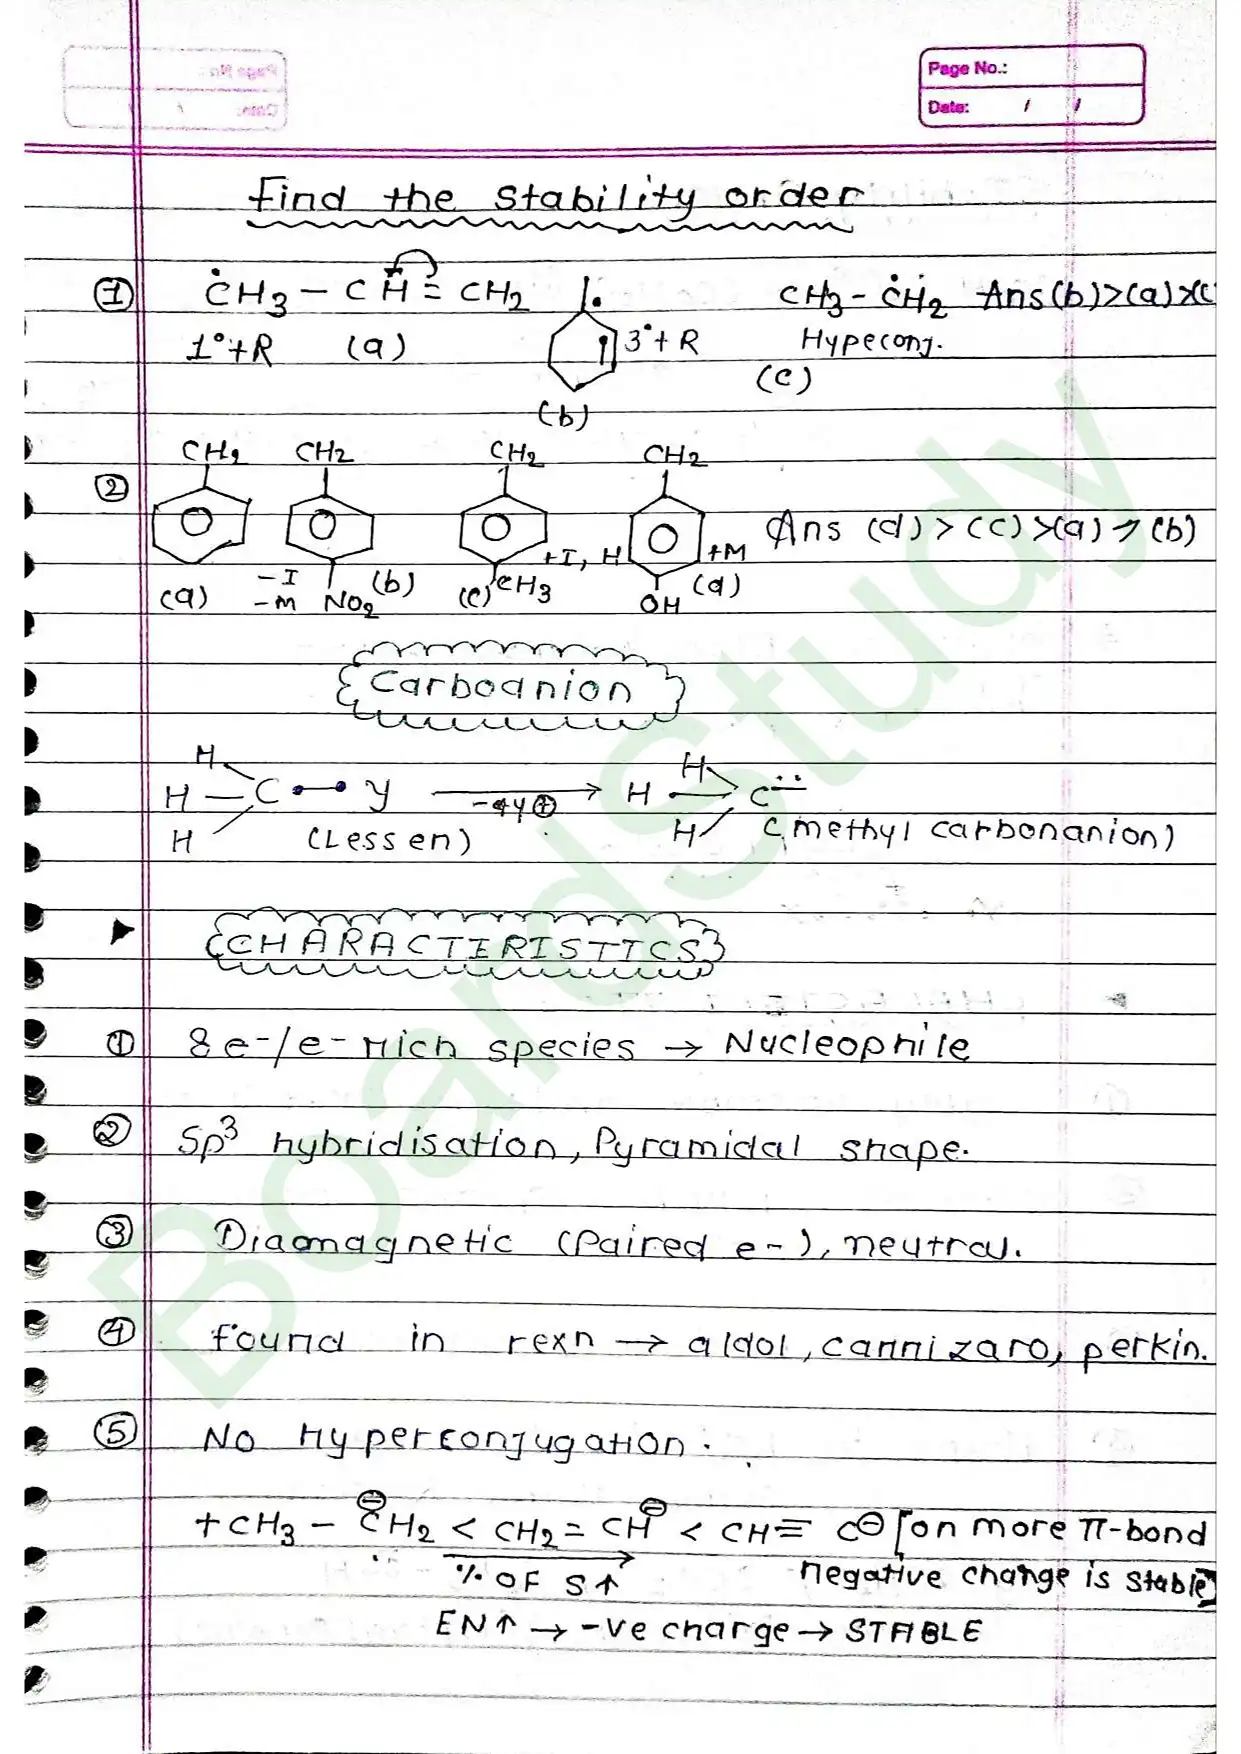 Page No.:
Date: / /
Find the stability order
① ĊH3 – CH = CH2 CH3 – ĊH2 Ans(b)>(a)>(c
1°+R (a) 3°+R Hyperconj.
(b) (c)
② CH2 CH2 CH2 CH2
Ans (d) > (c) >(a) > (b)
(a) –I –M NO2 (b) (c) CH3 +I, H OH +M (d)
Carboanion
H H H C Y (Less en) → H H H C (methyl carbonanion)
CHARACTERISTICS
① 8e-/e- rich species → Nucleophile
② Sp3 hybridisation, Pyramidal shape.
③ Diamagnetic (Paired e-), neutral.
④ found in rexn → aldol, cannizaro, perkin.
⑤ No Hyperconjugation.
+CH3 – CH2⊖ < CH2 = CH⊖ < CH≡ C⊖ [on more π-bond
% OF S↑ negative charge is stable]
EN↑ → -ve charge → STABLE
BoardStudy